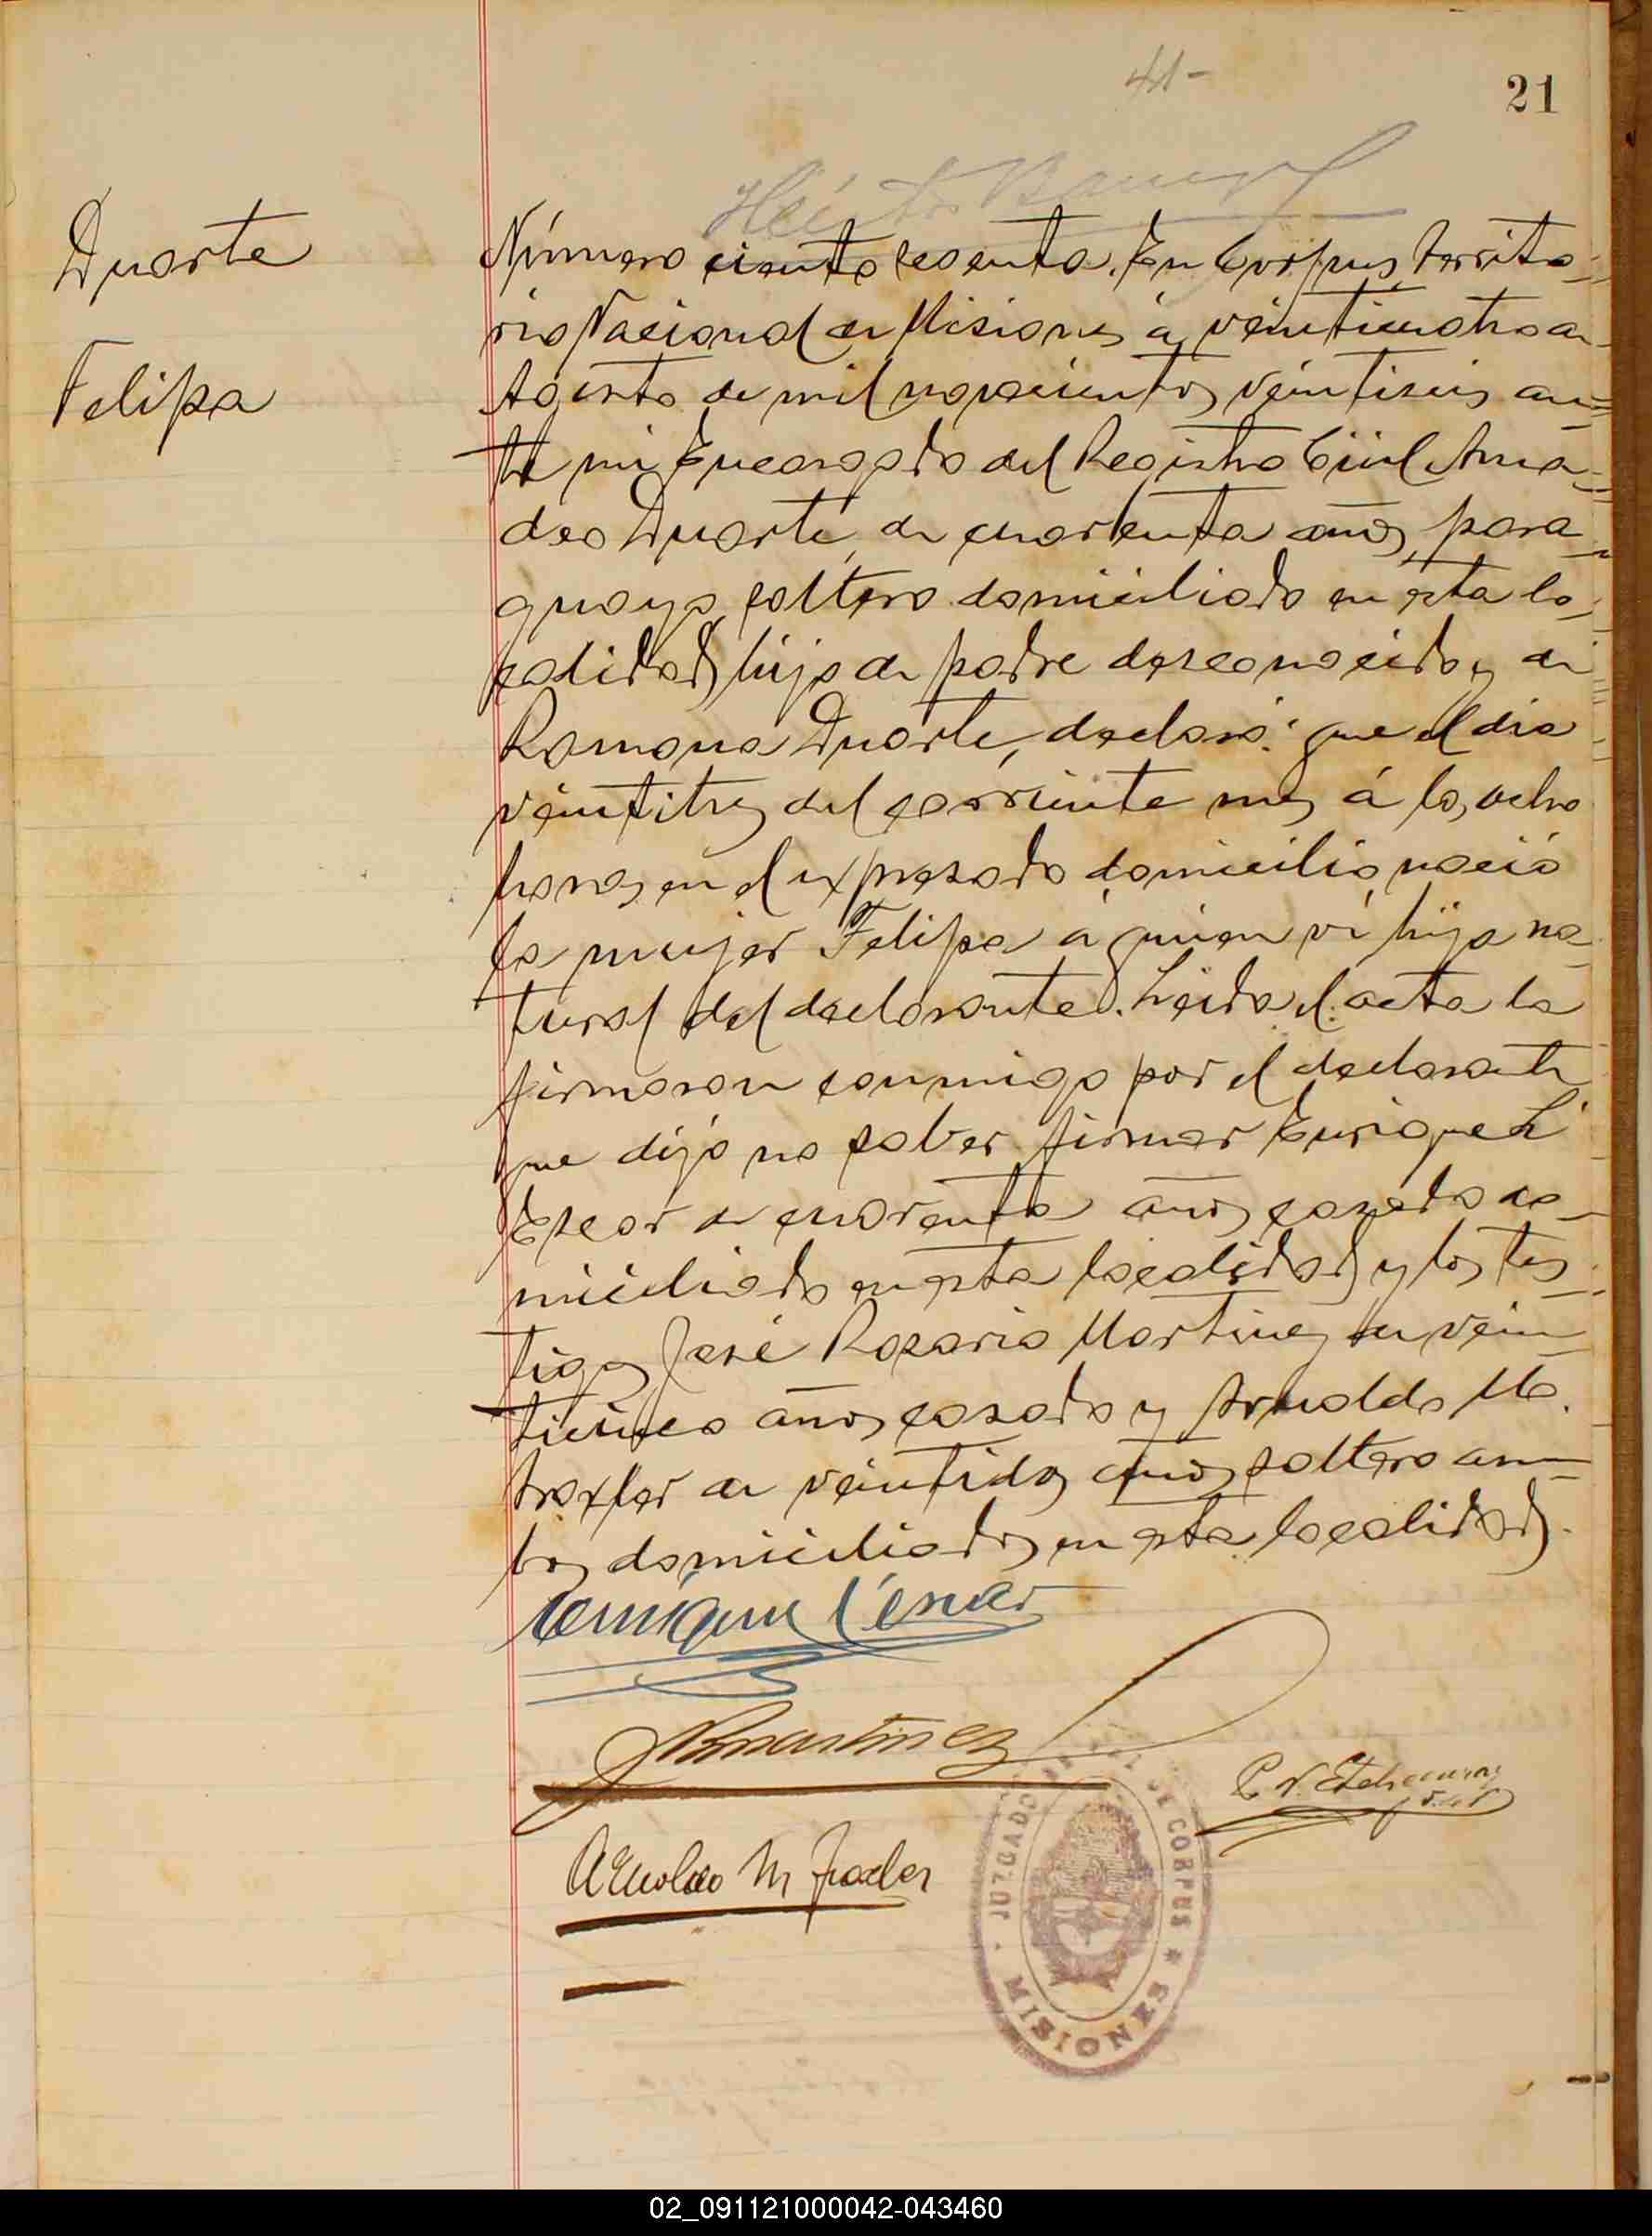 41-
21
Duarte
Felipa
Número ciento sesenta. En Corpus, Territo-
rio Nacional de Misiones á veinticuatro de
Agosto de mil novecientos veintiseis an-
te mi Encargado del Registro Civil Ama-
deo Duarte, de cuarenta años, para-
guayo, soltero domiciliado en esta lo-
calidad, hijo de padre desconocido y de
Ramona Duarte, declaró: que el dia
veintitres del corriente mes á las ocho
horas en el expresado domicilio nació
la mujer Felipa á quien ví hija na-
tural del declarante. Leida el acta la
firmaron conmigo por el declarante
que dijo no saber firmar Enrique L'
Escar de cuarenta años casado do-
miciliado en esta localidad y los tes-
tigos José Rosario Martinez de vein-
ticinco años casado y Arnoldo M.
Traxler de veintidos años soltero am-
bos domiciliados en esta localidad.
Enrique L'escar
JRMartinez
P. N. Etchecuraz
Arnoldo M Traxler
JUZGADO DE CORPUS * MISIONES
02_091121000042-043460